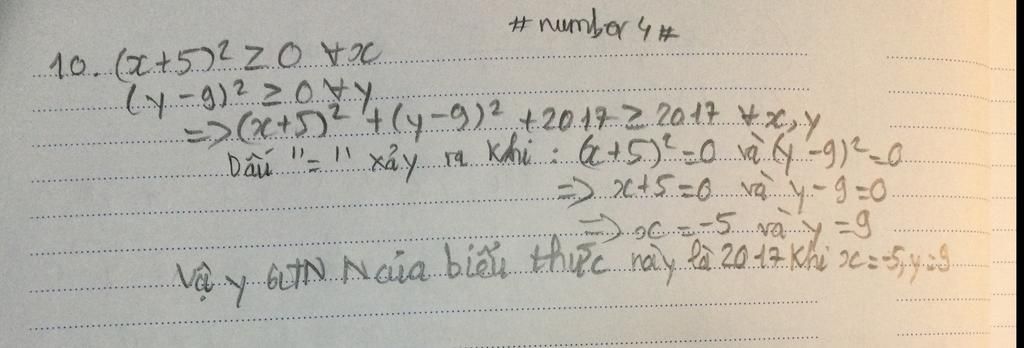 # number 4 #
10. (x+5)² ≥ 0 ∀x
(y-9)² ≥ 0 ∀y
=> (x+5)² + (y-9)² + 2017 ≥ 2017 ∀x,y
Dấu "=" xảy ra khi : (x+5)²=0 và (y-9)²=0
=> x+5=0 và y-9=0
=> x=-5 và y=9
Vậy GTNN của biểu thức này là 2017 khi x=-5, y=9